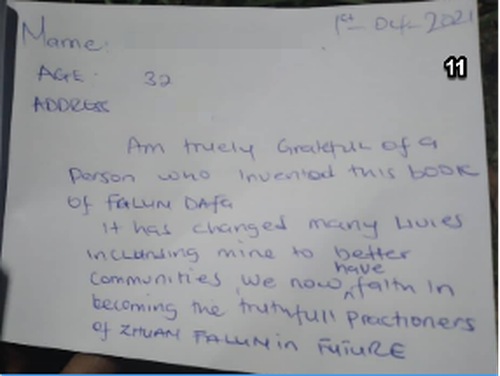 1st Oct 2021
Name:
11
AGE: 32
ADDRESS
Am truely Grateful of a
Person who invented this book
of FALUN DAFA
It has changed many Livies
including mine to better
communities, we now have faith in
becoming the truthfull practioners
of ZHUAN FALUN in FUTURE